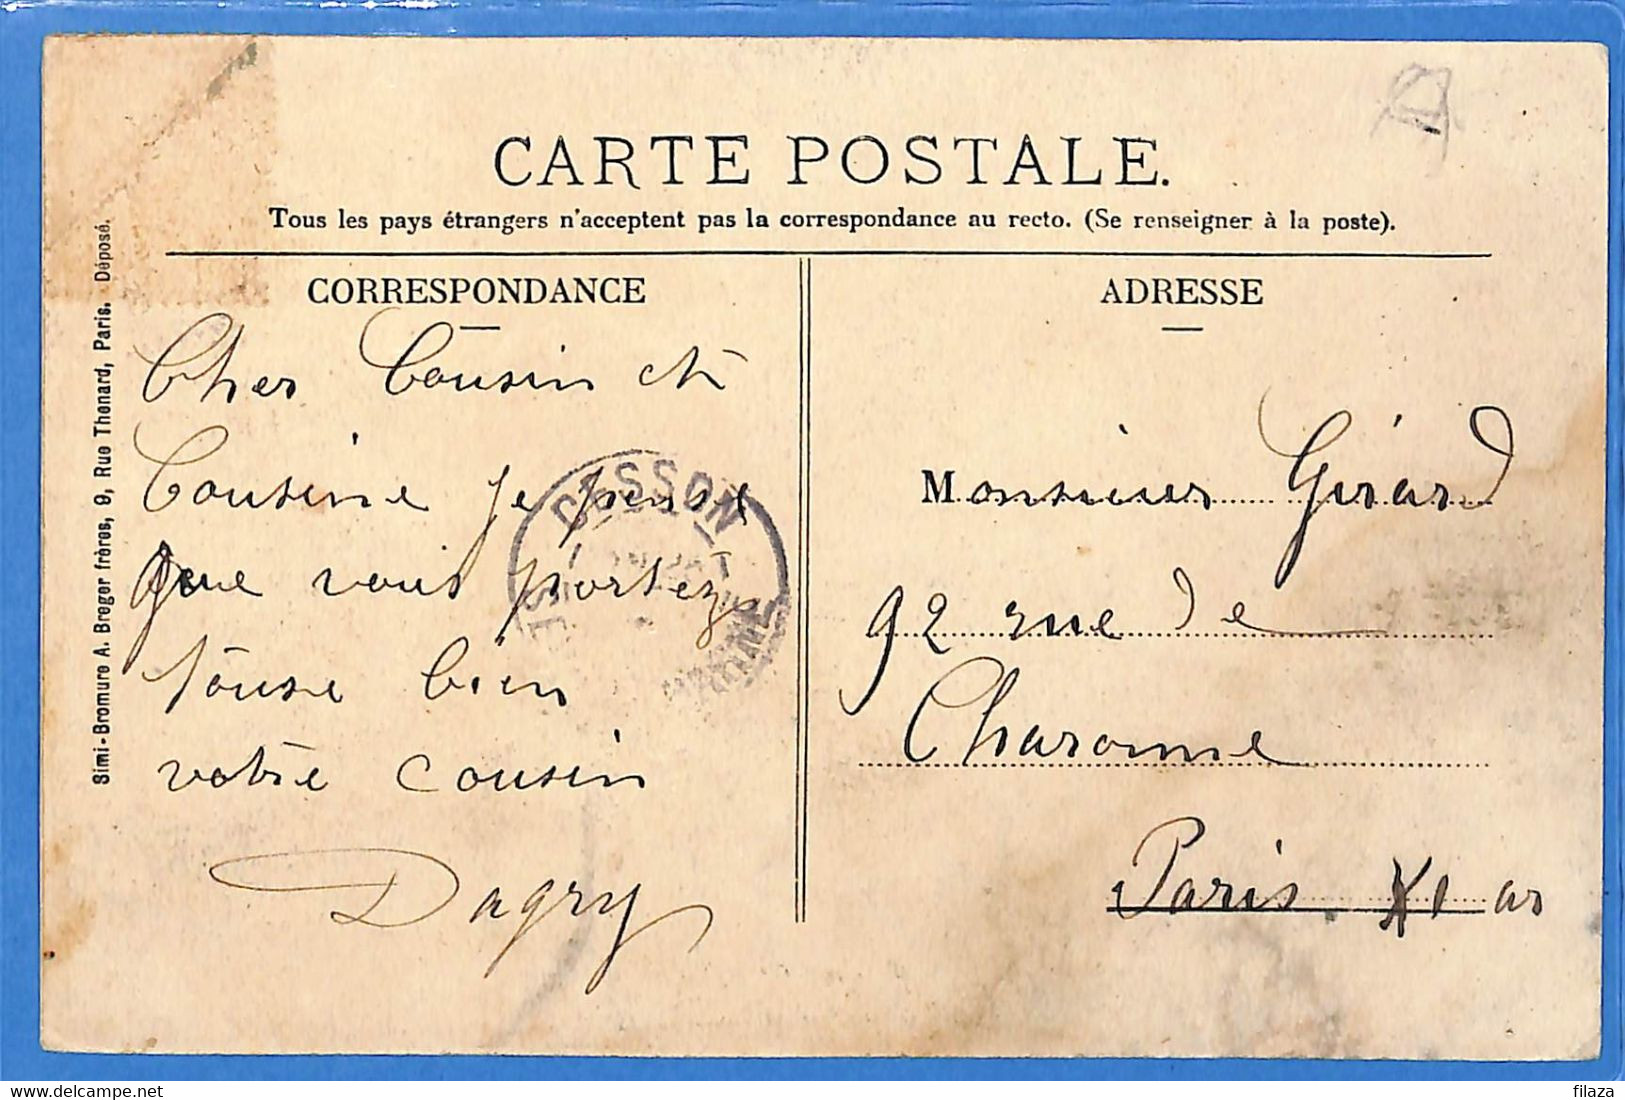 CARTE POSTALE.
Tous les pays étrangers n'acceptent pas la correspondance au recto. (Se renseigner à la poste).
CORRESPONDANCE
Cher Cousin et
Cousine je pense
que vous portez
touse bien
votre cousin
Dagry
ADRESSE
Monsieur Girard
92 rue de
Charonne
Paris XI ar
Simi-Bromure A. Breger frères, 9, Rue Thenard, Paris. Déposé.
CESSON
filaza